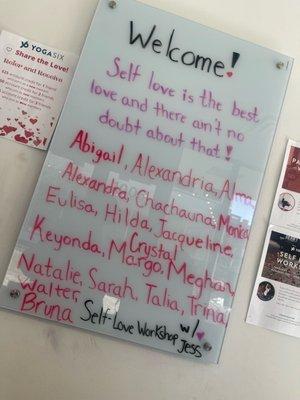 YOGASIX
Share the Love!
Refer and Receive
Welcome!
Self love is the best
love and there ain't no
doubt about that!
Abigail, Alexandria, Alma,
Alexandra, Chachauna, Monica
Eulisa, Hilda, Jacqueline,
Keyonda, Crystal
Margo, Meghan
Natalie, Sarah, Talia, Trina,
Walter
Bruna Self-Love Workshop w/
Jess